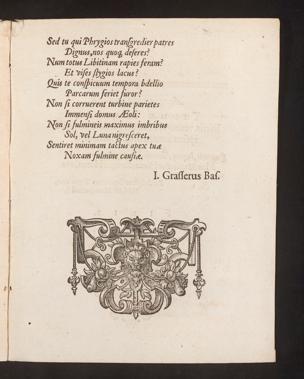 Sed tu qui Phrygios transgredier patres
Dignus, nos quoq, deseres?
Num totus Libitinam rapies feram?
Et vises stygios lacus?
Quis te conspicuum tempora bdellio
Parcarum feriet furor?
Non si corruerent turbine parietes
Immensi domus Æoli:
Non si fulmineis maximus imbribus
Sol, vel Luna nigresceret,
Sentiret minimam tactus apex tuæ
Noxam fulmine caussæ.
I. Grasserus Bas.